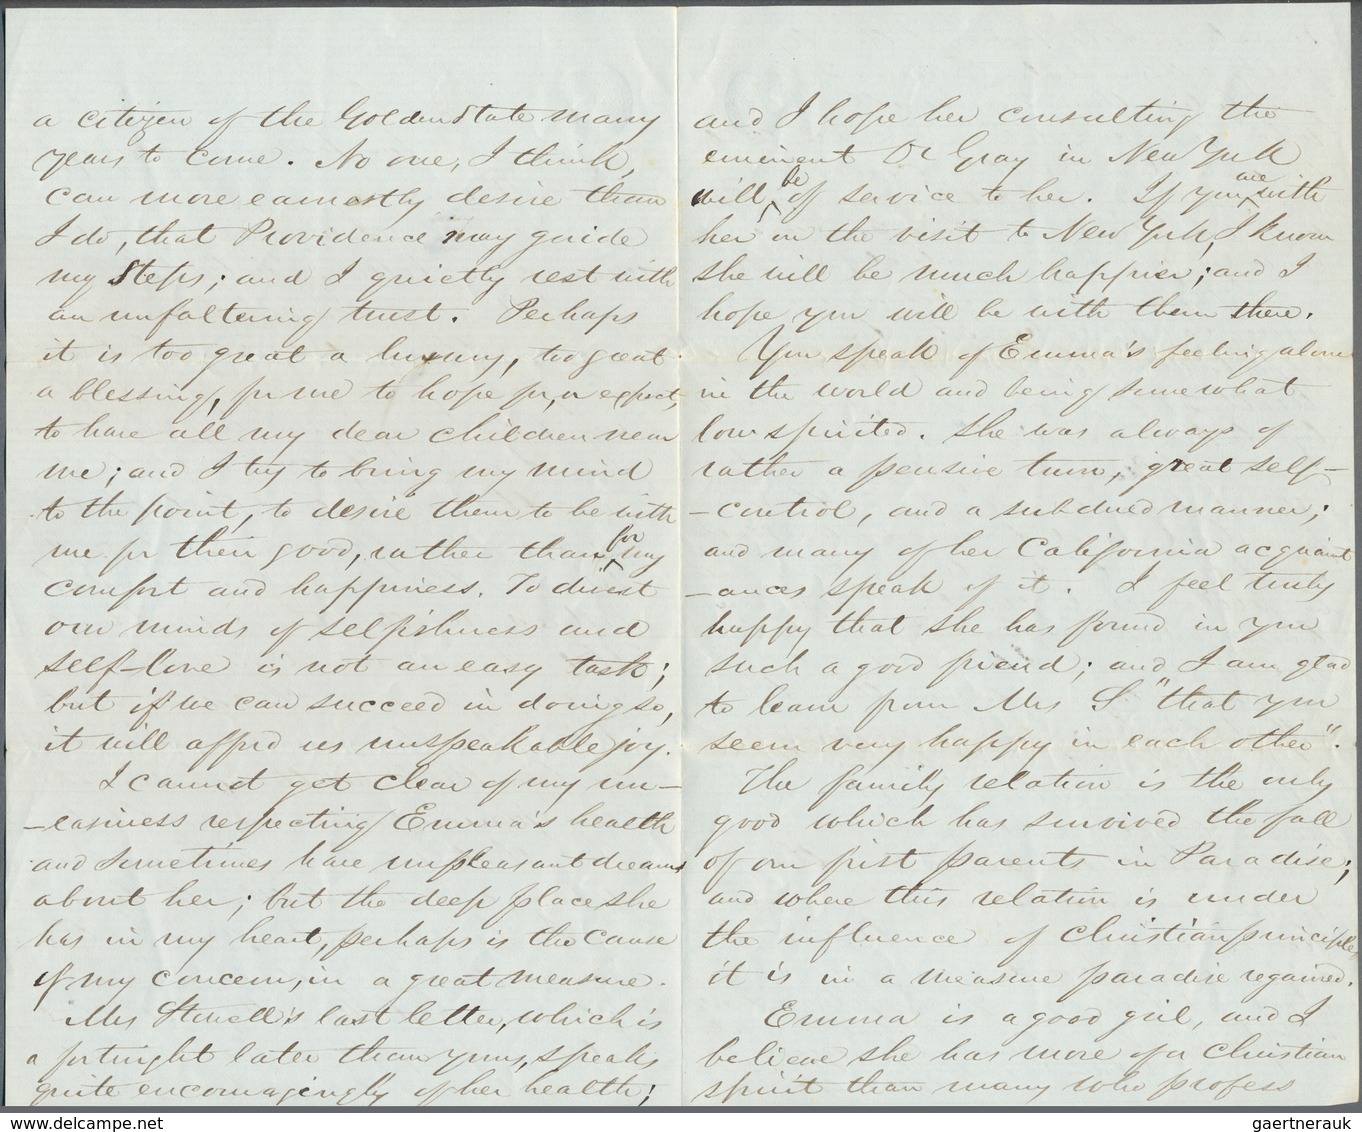 a citizen of the Golden State many
years to come. No one, I think,
can more earnestly desire than
I do, that Providence may guide
my steps; and I quietly rest with
an unfaltering trust. Perhaps
it is too great a luxury, too great
a blessing, for me to hope for, or expect,
to have all my dear children near
me; and I try to bring my mind
to the point, to desire them to be with
me for their good, rather than for my
comfort and happiness. To divest
our minds of selfishness and
self-love is not an easy task;
but if we can succeed in doing so,
it will afford us unspeakable joy.
I cannot get clear of my un-
-easiness respecting Emma's health
and sometimes have unpleasant dreams
about her; but the deep place she
has in my heart, perhaps is the cause
of my concern, in a great measure.
Mrs Stowell's last letter, which is
a fortnight later than yours, speaks
quite encouragingly of her health;
and I hope her consulting the
eminent Dr Gray in New York
will be of service to her. If you are with
her on the visit to New York, I know
she will be much happier; and I
hope you will be with them there.
You speak of Emma's feeling alone
in the world and being somewhat
low spirited. She was always of
rather a pensive turn, great self-
-control, and a subdued manner;
and many of her California acquaint
-ances speak of it. I feel truly
happy that she has found in you
such a good friend; and I am glad
to learn from Mrs S "that you
seem very happy in each other".
The family relation is the only
good which has survived the fall
of our first parents in Paradise;
and where this relation is under
the influence of Christian principles
it is in a measure paradise regained.
Emma is a good girl, and I
believe she has more of a Christian
spirit than many who profess
gaertnerauk